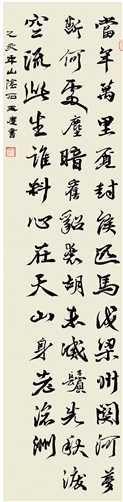 當年萬里覓封侯匹馬戍梁州關河夢
斷何處塵暗舊貂裘胡未滅鬢先秋淚
空流此生誰料心在天山身老滄洲
年山陰書